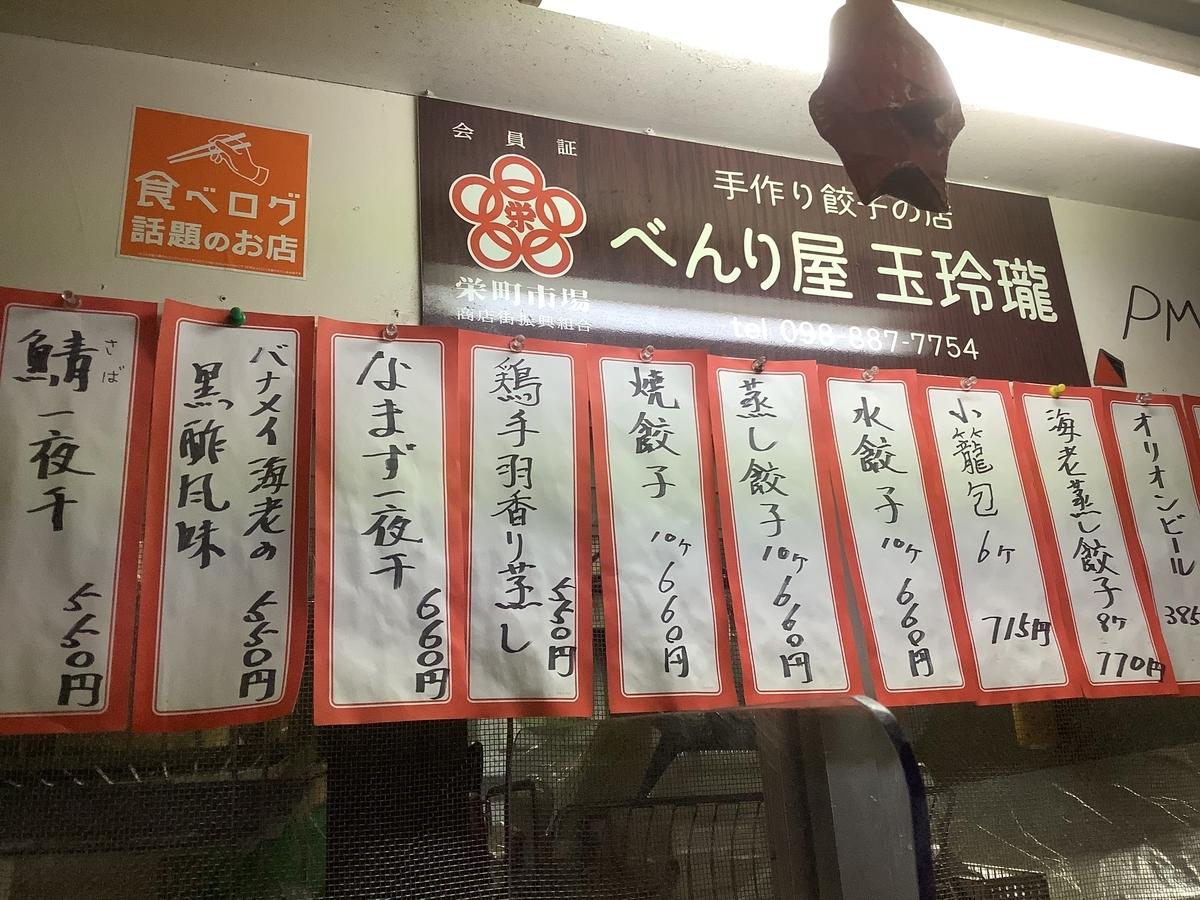 食べログ
話題のお店
会員証
栄
栄町市場
商店街振興組合
手作り餃子の店
べんり屋 玉玲瓏
tel 098-887-7754
PM
鯖一夜干
さば
550円
バナメイ海老の
黒酢風味
550円
なまず一夜干
660円
鶏手羽香り蒸し
550円
焼餃子 10ヶ 660円
蒸し餃子 10ヶ 660円
水餃子 10ヶ 660円
小籠包 6ヶ 715円
海老蒸し餃子 8ヶ 770円
オリオンビール
385